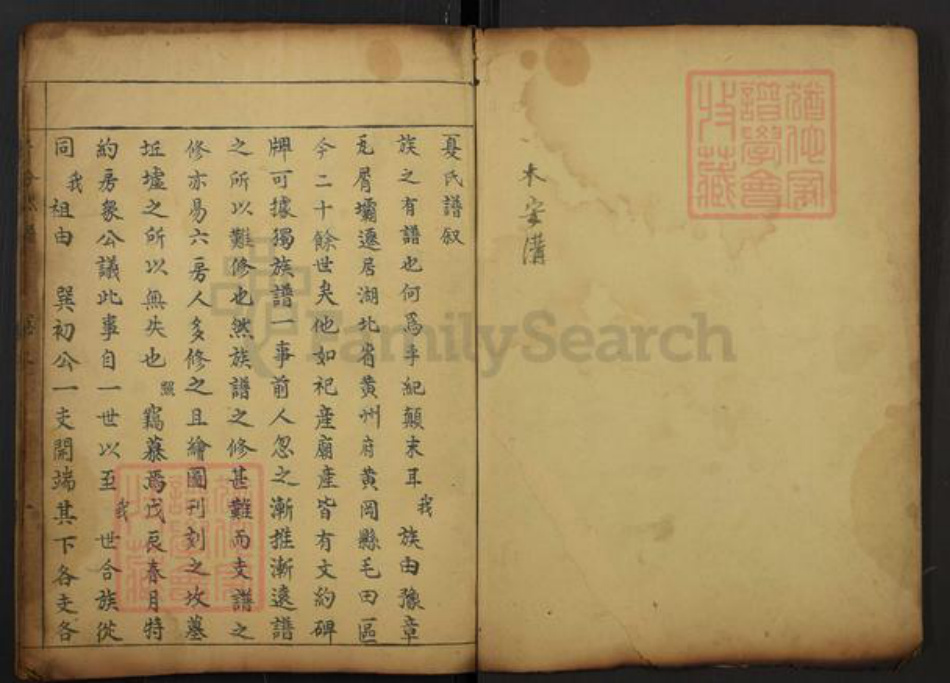 木安溝
夏氏譜叙
族之有譜也何爲乎紀顛末耳我族由豫章
瓦屑壩遷居湖北省黄州府黄岡縣毛田區
今二十餘世矣他如祀産廟産皆有文約碑
牌可據獨族譜一事前人忽之漸推漸遠譜
之所以難修也然族譜之修甚難而支譜之
修亦易六房人多修之且繪圖刊刻之坟墓
坵墟之所以無失也熙竊慕焉戊辰春月特
約房衆公議此事自一世以至我世合族從
同我祖由巽初公一支開端其下各支各
FamilySearch